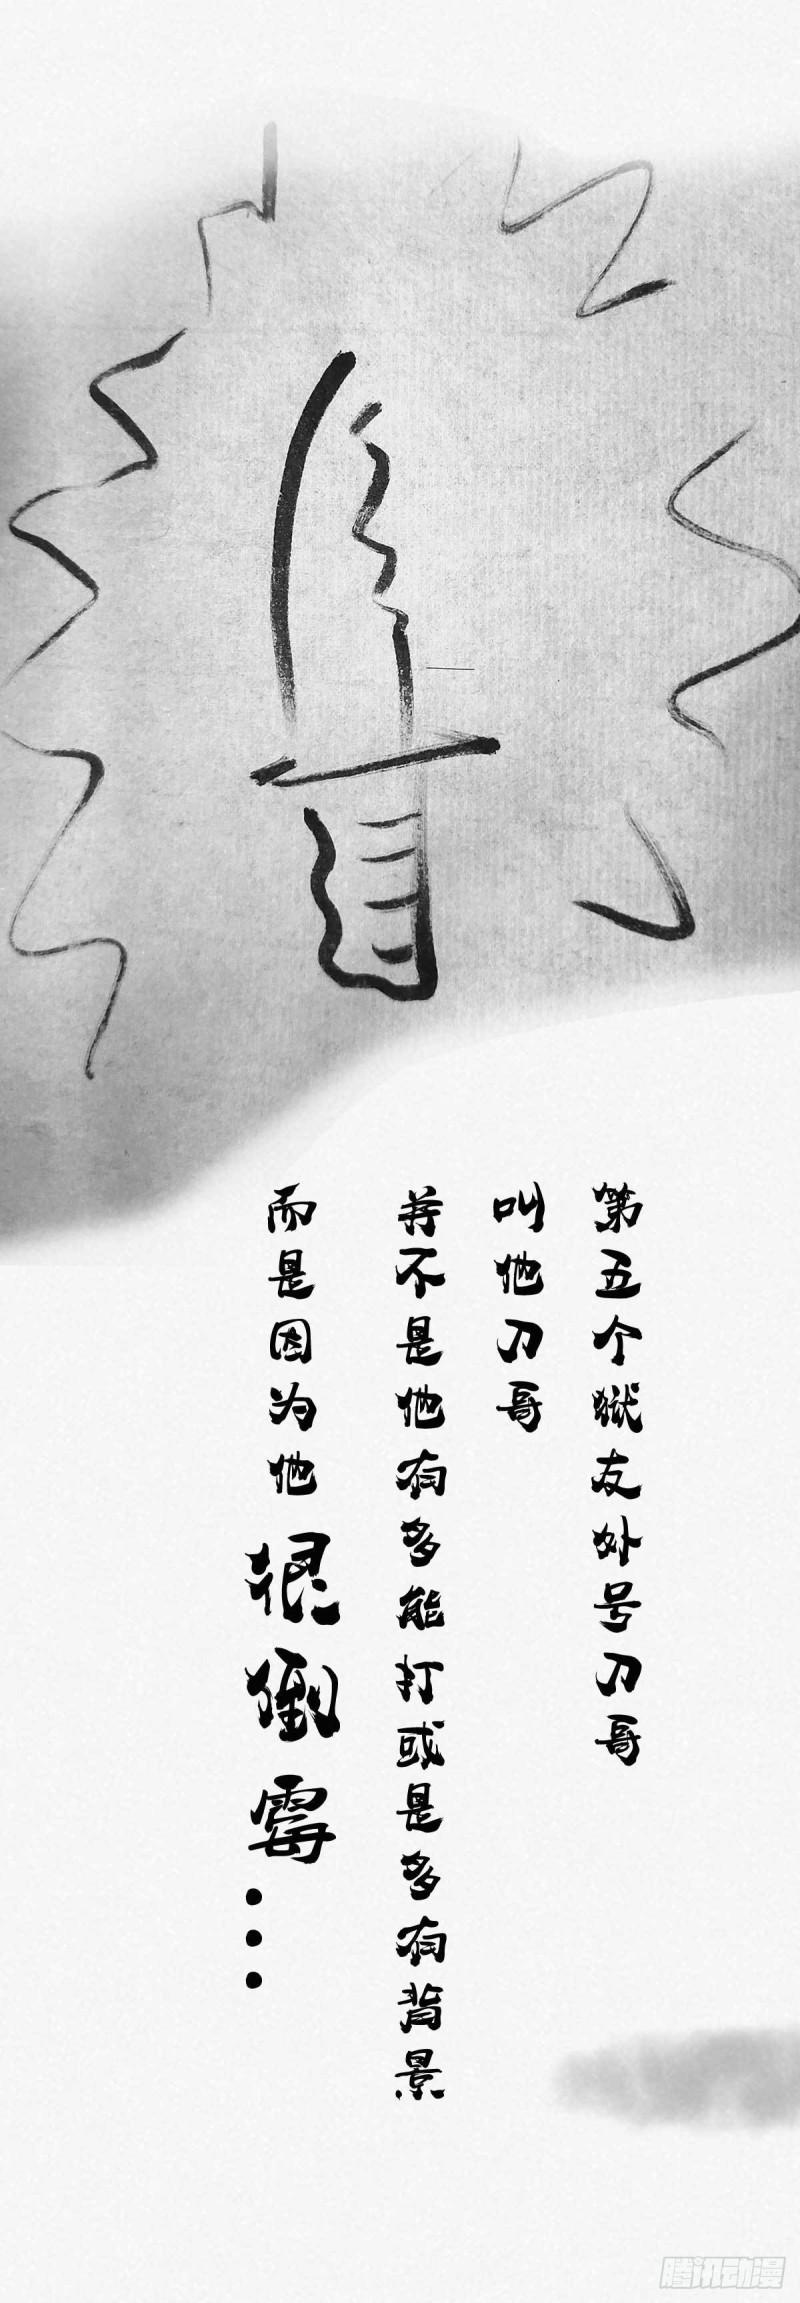 第五个狱友外号刀哥
叫他刀哥
并不是他有多能打或是多有背景
而是因为他很倒霉...
腾讯动漫